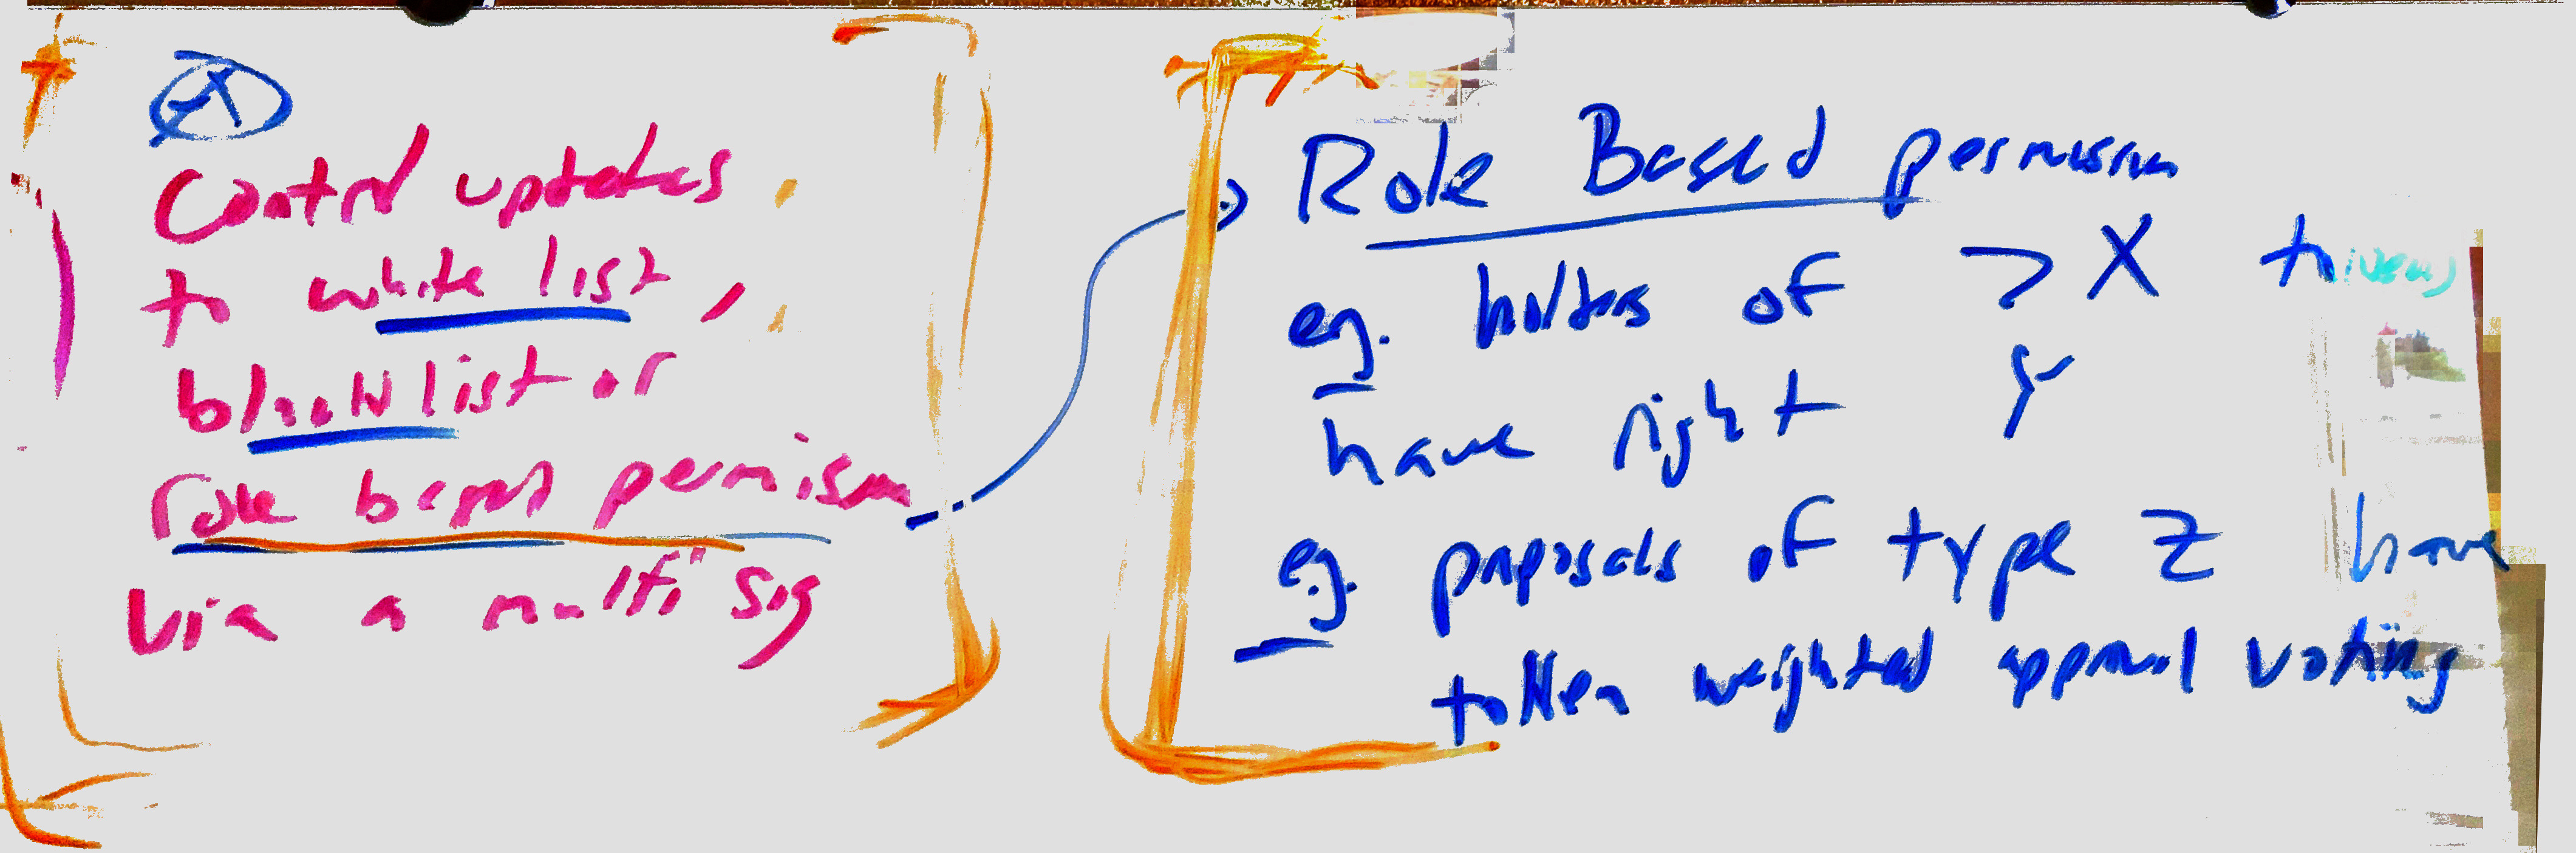 Control updates
to white list,
blacklist or
role based permission
via a multi sig
Role Based permission
eg. holders of > X
have right Y
eg. proposals of type Z have
token weighted approval voting